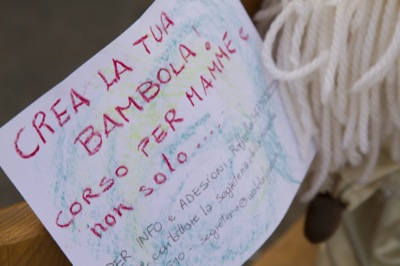 CREA LA TUA
BAMBOLA!
CORSO PER MAMME e
non solo....
PER INFO e ADESIONI
contattare la Segreteria
segreteria@